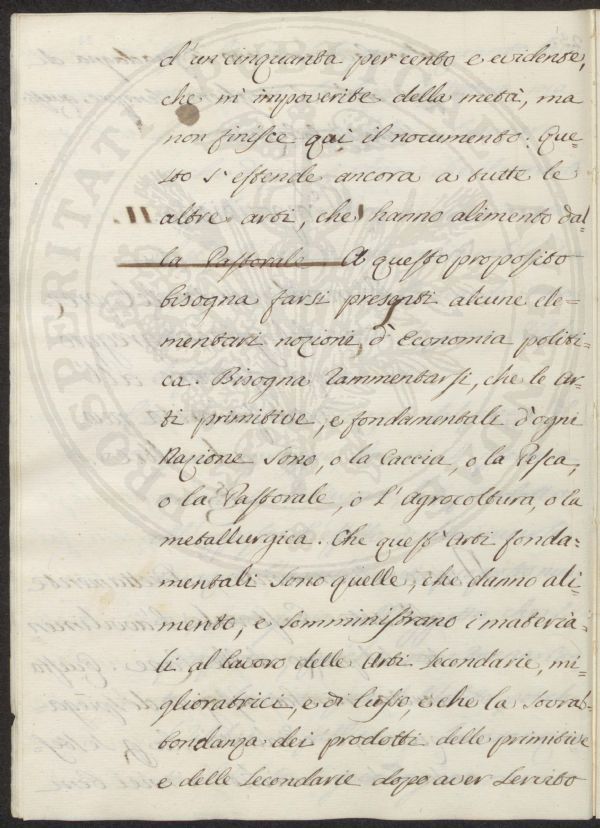 d'un cinquanta per cento e evidente,
che m'impoverite della metà, ma
non finisce quì il nocumento: Que=
sto s'estende ancora a tutte le
altre arti, che hanno alimento dal=
la Pastorale A questo proposito
bisogna farsi presenti alcune ele=
mentari nozione d'Economia politi=
ca. Bisogna rammentarsi, che le Ar=
ti primitive, e fondamentale d'ogni
Nazione sono, o la Caccia, o la Pesca,
o la Pastorale, o l'Agrocoltura, o la
metallurgica. Che quest'Arti fonda=
mentali sono quelle, che danno ali=
mento, e somministrano i materia=
li al lavoro delle Arti secondarie, mi=
glioratrici, e di lusso, e che la sovrab=
bondanza dei prodotti delle primitive
e delle secondarie dopo aver servito